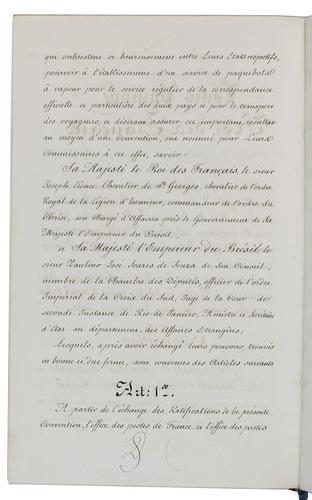 qui subsistent si heureusement entre Leurs Etats respectifs,
pourvoir à l'établissement d'un service de paquebots
à vapeur pour le service régulier de la correspondance
officielle et particulière des deux pays et pour le transport
des voyageurs; et désirant assurer cet important résultat
au moyen d'une Convention, ont nommé pour Leurs
Commissaires à cet effet, savoir:
Sa Majesté le Roi des Français, le sieur
Joseph Léonce Chevalier de St Georges, chevalier de l'ordre
Royal de la Légion d'honneur, commandeur de l'ordre du
Christ, son Chargé d'Affaires près le Gouvernement de Sa
Majesté l'Empereur du Brésil,
et Sa Majesté l'Empereur du Brésil, le
sieur Paulino José Soares de Souza de Son Conseil,
membre de la Chambre des Députés, officier de l'ordre
Impérial de la Croix du Sud, Juge de la Cour de
seconde Instance de Rio de Janeiro, Ministre et Secrétaire
d'Etat au département des Affaires Etrangères;
Lesquels, après avoir échangé leurs pouvoirs trouvés
en bonne et due forme, sont convenus des Articles suivants
Art: 1er.
A partir de l'échange des Ratifications de la présente
Convention, l'office des postes de France et l'office des postes